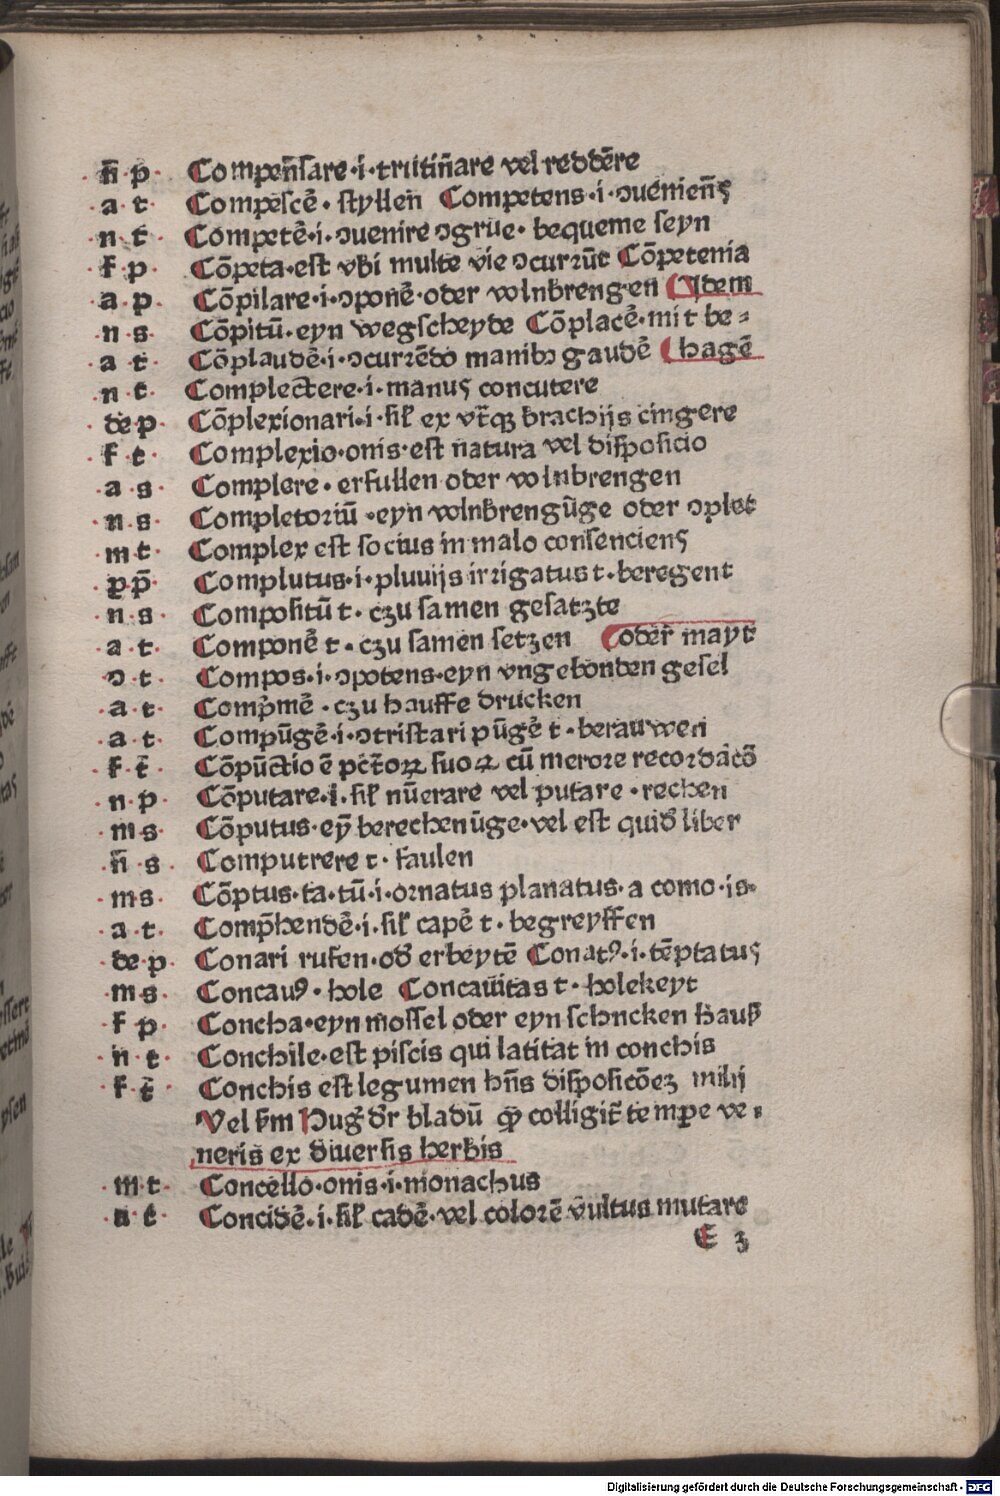 n̄ p Compen̄sare·i·trutin̄are vel reddēre
a t Compescē·styllen Competens·i·ↄuenien̄s
n t Competē·i·ↄuenire ↄgrue·bequeme seyn
f p Cōpeta·est vbi multe vie ↄcurrūt Cōpetenia
a p Cōpilare·i·ↄponē·oder volnbrengen Idem
n s Cōpitū·eyn wegscheyde Cōplacē·mit be⸗
a t Cōplaudē·i·ↄcurrēdo manibꝫ gaudē hagē
n t Complectere·i·manus concutere
de p Cōplexionari·i·sil̄ ex vt̄qꝫ brachijs cingere
f t Complexio·onis·est natura vel disposicio
a s Complere·erfullen oder volnbrengen
n s Completoriū·eyn volnbrengūge oder ↄplet
m t Complex est socius in malo consenciens
p p̄ Complutus·i·pluuijs irrigatus t·beregent
n s Compositū t·czu samen gesatzte
a t Componē t·czu samen setzen oder mayt
ↄ t Compos·i·ↄpotens·eyn vngebonden gesel
a t Comp̄mē·czu hauffe drucken
a t Compūgē·i·ↄtristari pūgē t·berauwen
f t̄ Cōpūctio ē pct̄oꝝ suoꝝ cū merore recordac̄o
n p Cōputare·i·sil̄ nūerare vel putare·rechen
m s Cōputus·eȳ berechenūge·vel est quid̄ liber
n̄ s Computrere t·faulen
m s Cōptus·ta·tū·i·ornatus planatus·a como·is·
a t Comp̄hendē·i·sil̄ capē t·begreyffen
de p Conari rufen·od̄ erbeytē Conatꝰ·i·tēptatus
m s Concauꝰ·hole Concauitas t·holekeyt
f p Concha·eyn mossel oder eyn schncken hauß
n t Conchile·est piscis qui latitat in conchis
f t̄ Conchis est legumen hn̄s disposicōeꝫ milij
Vel s̄m Hug̉ dr̄ bladū qď colligit̄ tempe ve⸗
neris ex diuersis herbis
m t Concello·onis·i·monachus
n t Concidē·i·sil̄ cadē·vel colorē vultus mutare
E 3
Digitalisierung gefördert durch die Deutsche Forschungsgemeinschaft - DFG